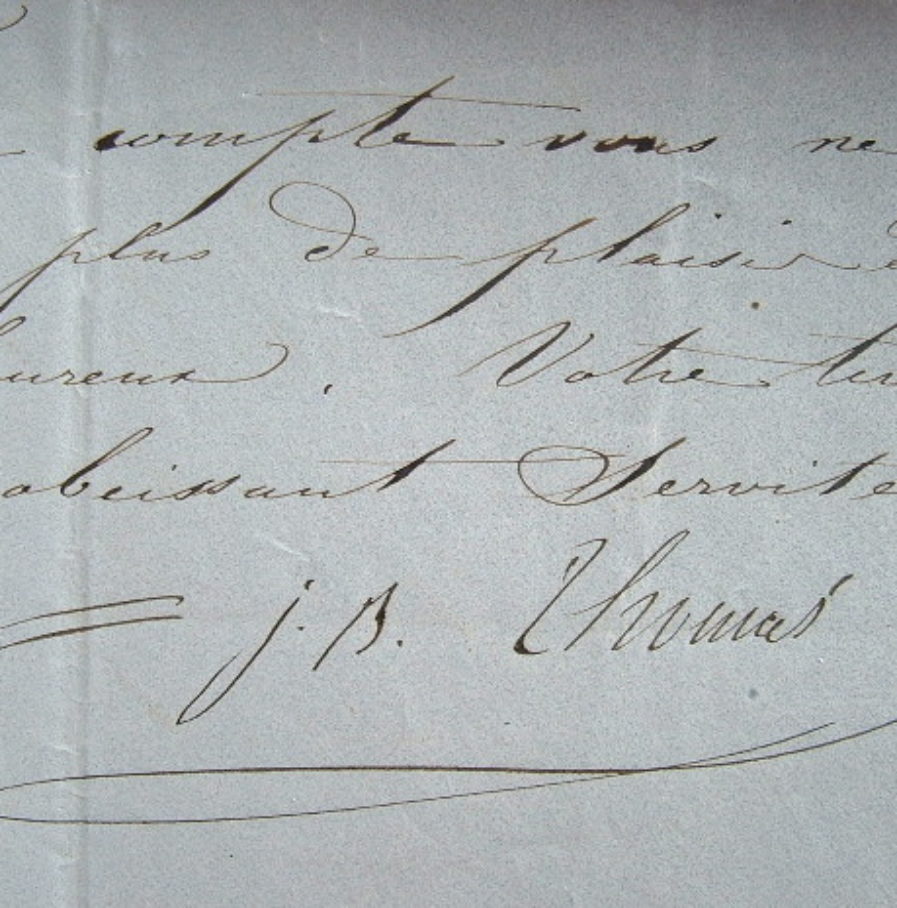 compte vous ne
plus de plaisir
eureux. Votre
obeissant Servite
J. B. Thomas